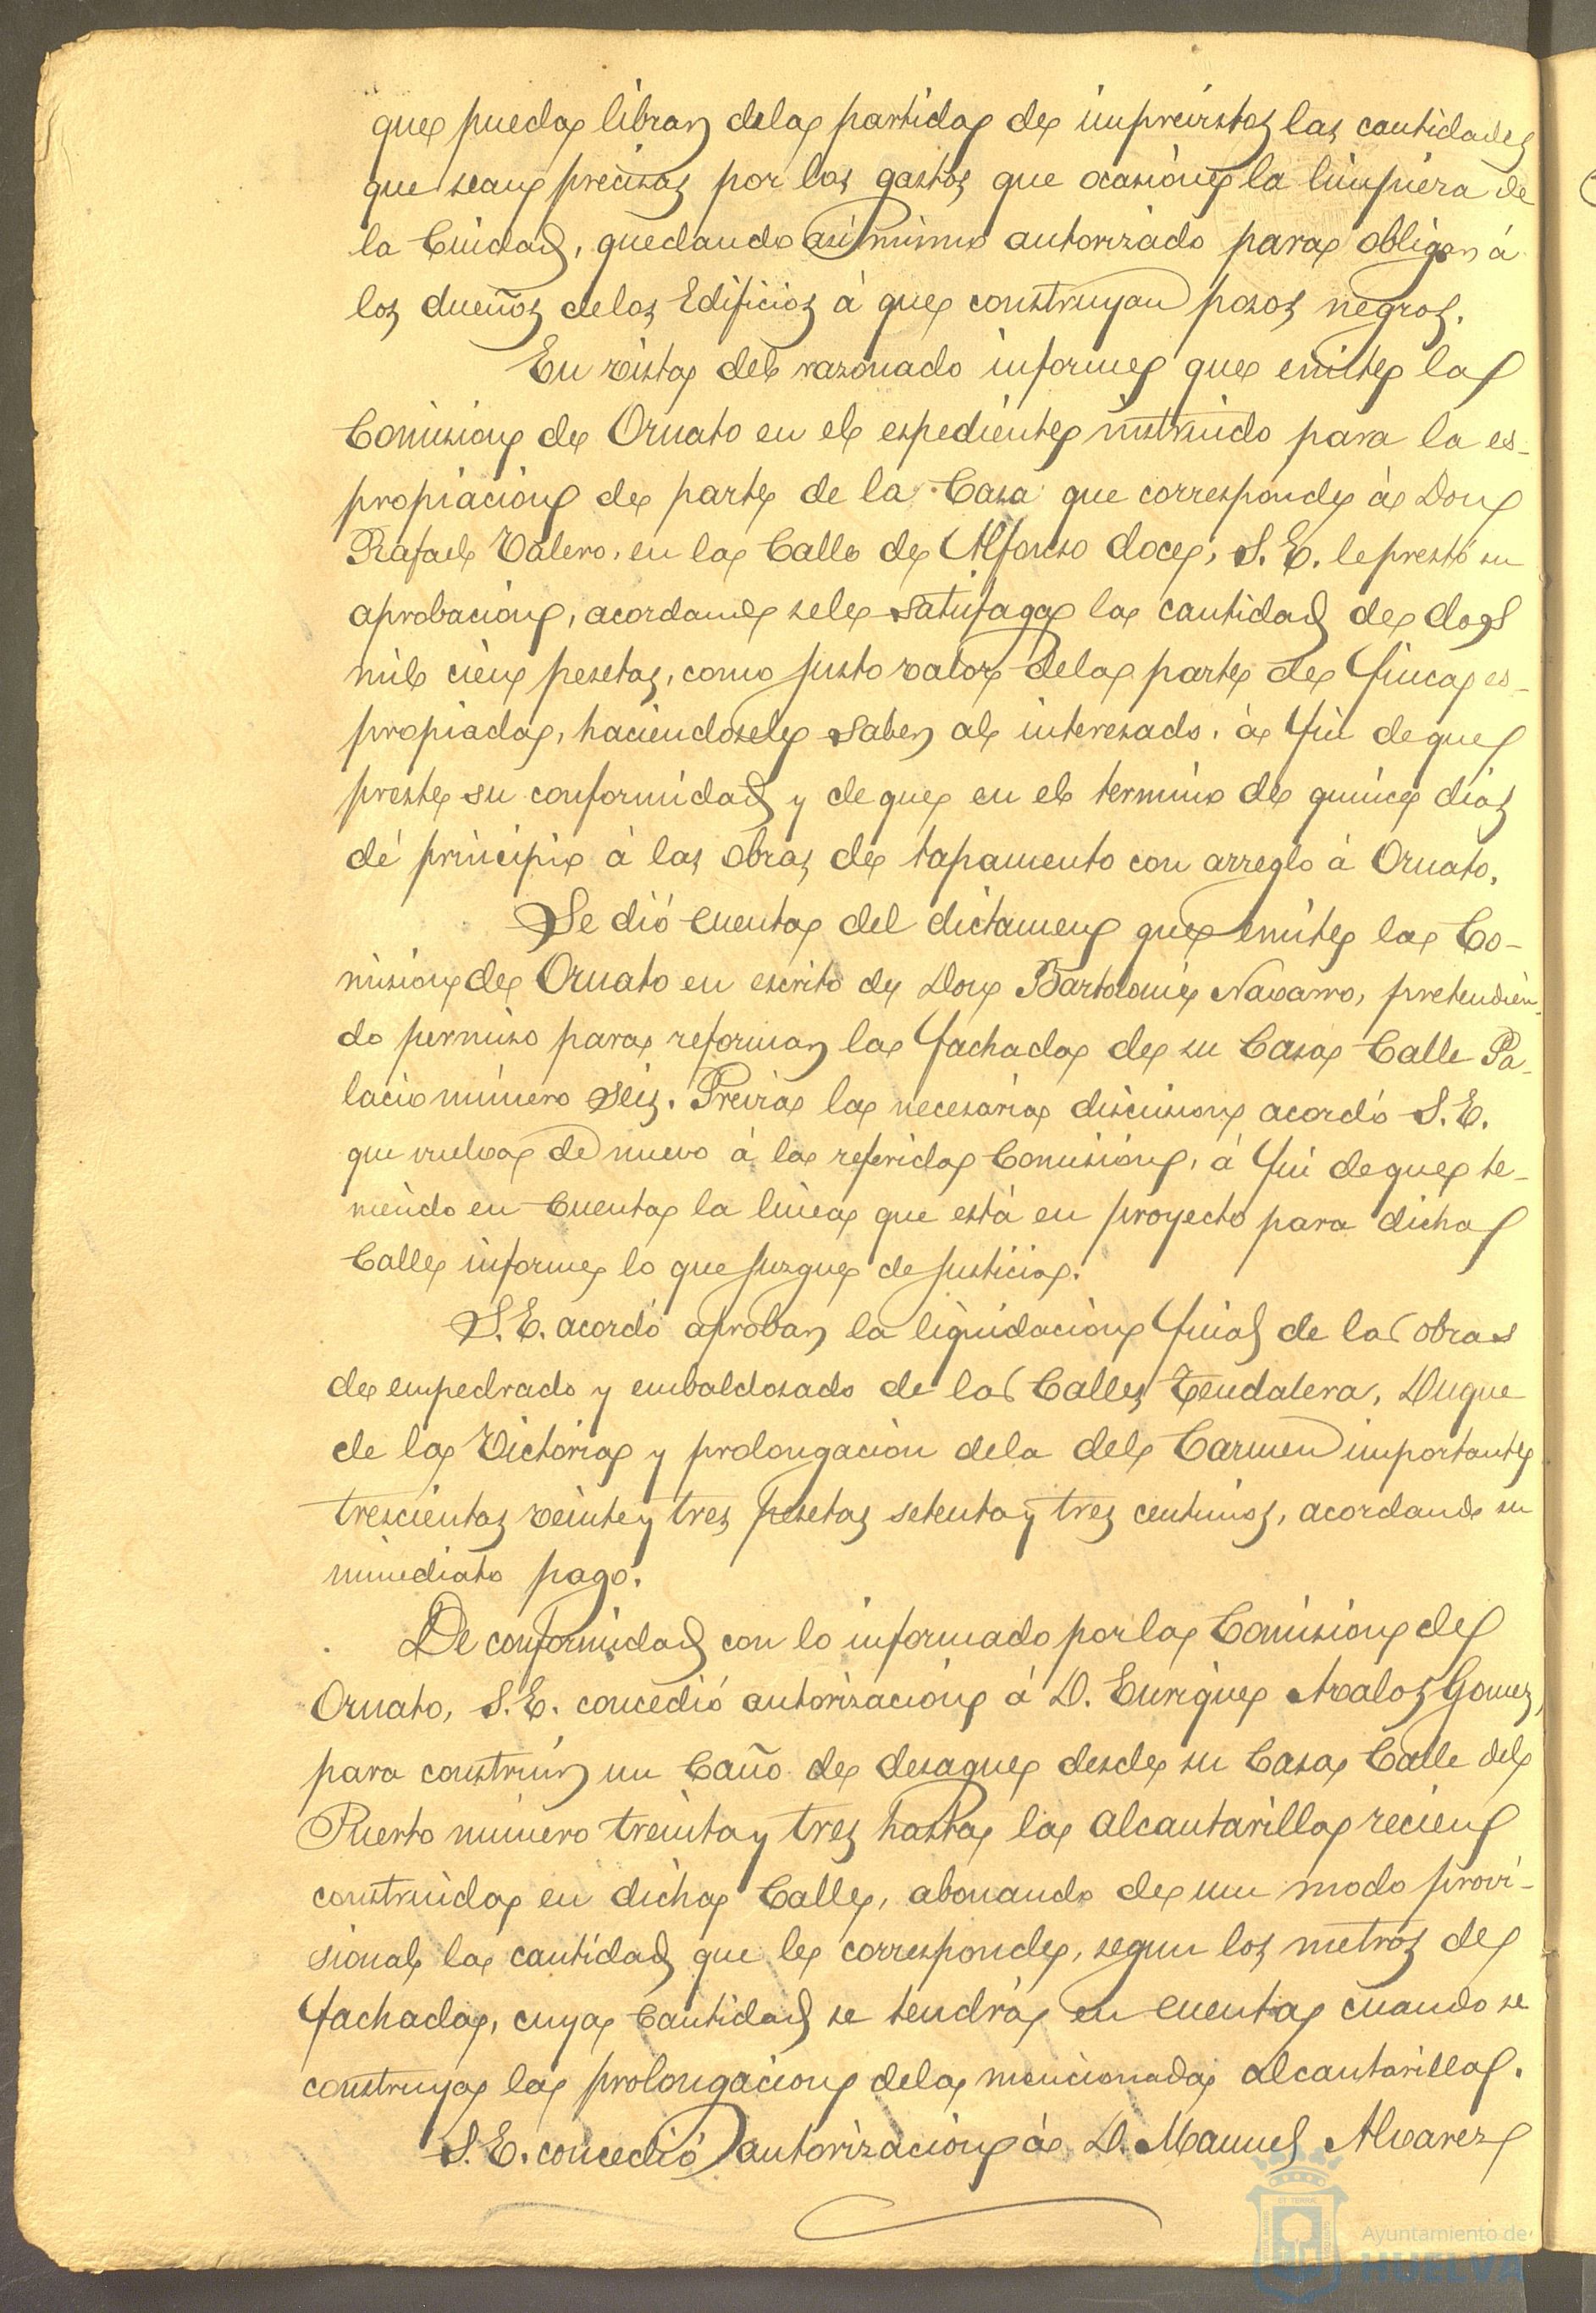 que pueda librar dela partida de imprevistos las cantidades
que sean precisas por los gastos que ocasione la limpieza de
la Ciudad, quedando asi mismo autorizado para obligar á
los dueños delos Edificios á que construyan posos negros.
En vista del razonado informe que emite la
Comision de Ornato en el espediente instruido para la es-
propiacion de parte de la Casa que corresponde á Don
Rafael Valero, en la Calle de Alfonso doce, S. E. le prestó su
aprobacion, acordando sele satisfaga la cantidad de dos
mil cien pesetas, como justo valor dela parte de finca es-
propiada, haciendosele saber al interesado, á fin deque
preste su conformidad y deque en el termino de quince dias
dé principio á las obras de tapamento con arreglo á Ornato.
Se dió cuenta del dictamen que emite la Co-
mision de Ornato en escrito de Don Bartolomé Navarro, pretendien-
do permiso para reformar la fachada de su Casa Calle Pa-
lacio número seis. Previa la necesaria discusion acordó S. E.
que vuelva de nuevo á la referida Comision, á fin deque te-
niendo en cuenta la linea que está en proyecto para dicha
Calle informe lo que juzgue de justicia.
S. E. acordó aprobar la liquidacion final de las obras
de empedrado y embaldosado de las Calles Tendalera, Duque
de la Victoria y prolongacion dela del Carmen importante
trescientas veinte y tres pesetas setenta y tres centimos, acordando su
inmediato pago.
De conformidad con lo informado por la Comision de
Ornato, S. E. concedió autorizacion á D. Enrique Avalos Gomez,
para construir un Caño de desague desde su Casa Calle del
Puerto número treinta y tres hasta la alcantarilla recien
construida en dicha Calle, abonando de un modo provi-
sional la cantidad que le corresponde, segun los metros de
fachada, cuya Cantidad se tendrá en cuenta cuando se
construya la prolongacion dela mencionada alcantarilla.
S. E. concedió autorizacion á D. Manuel Alvarez
Ayuntamiento de
HUELVA